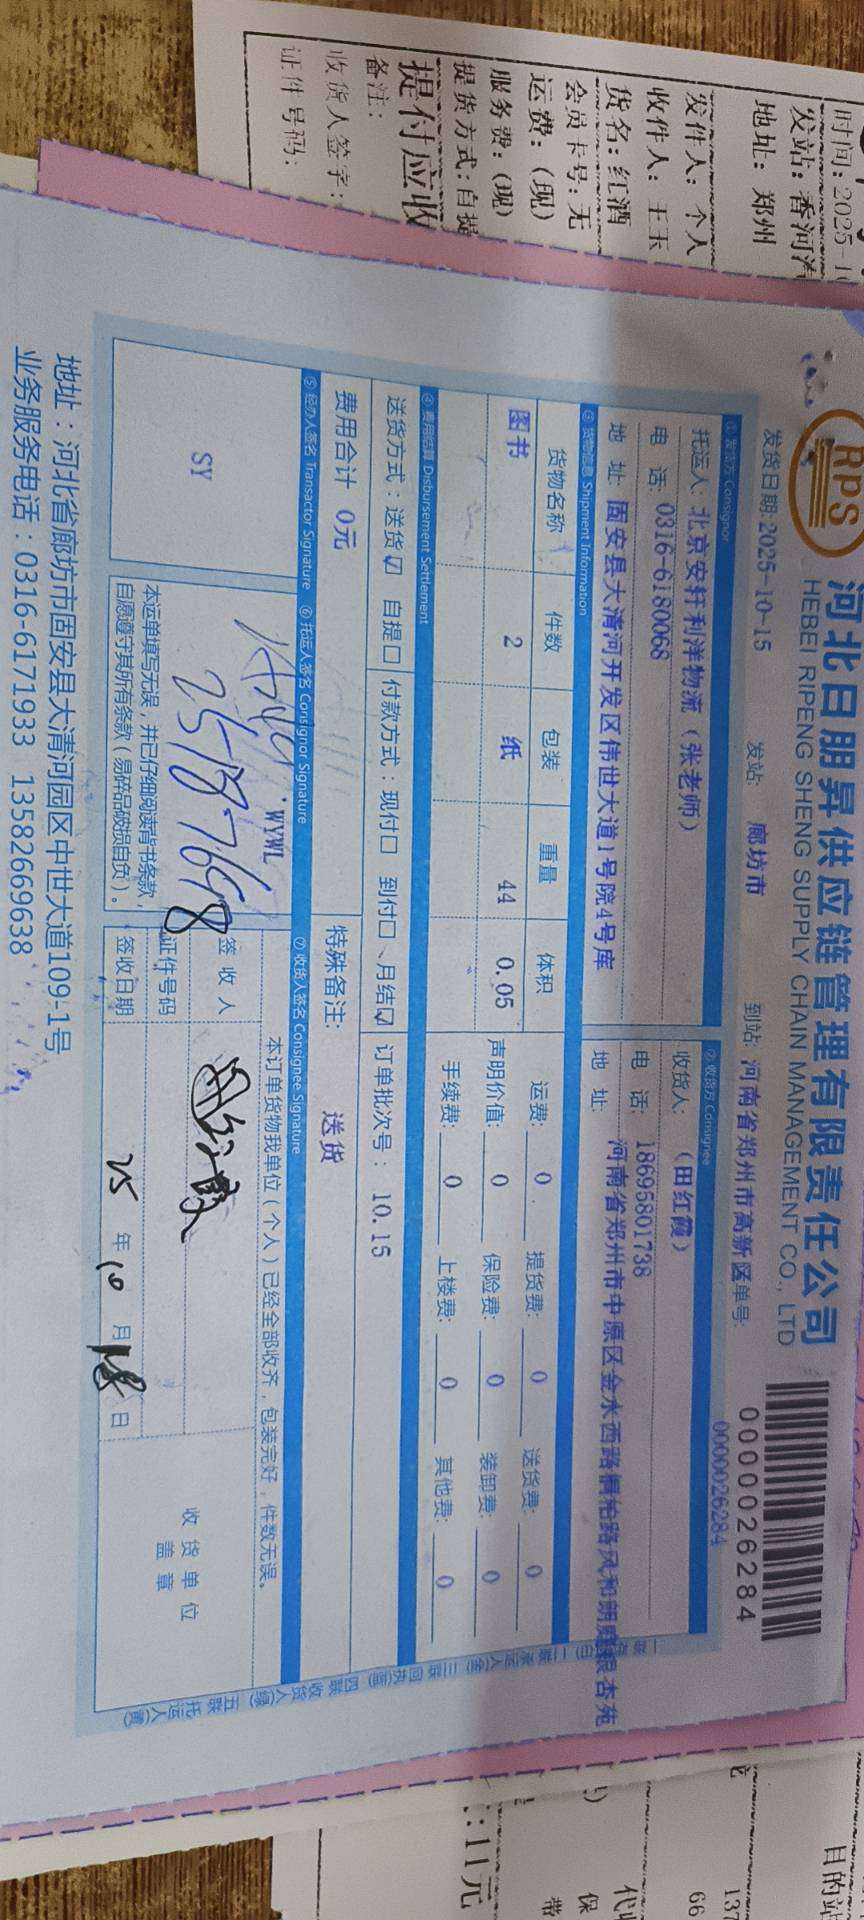 时间：2025-1
发站：香河
地址：郑州
发件人：个人
收件人：王玉
货名：红酒
会员卡号：无
运费：(现)
服务费：(现)
提货方式：自提
提付应收
备注：
收货人签字：
证件号码：
RPS
河北日朋昇供应链管理有限责任公司
HEBEI RIPENG SHENG SUPPLY CHAIN MANAGEMENT CO., LTD
0000026284
发货日期:2025-10-15 发站: 廊坊市 到站: 河南省郑州市高新区 单号: 0000026284
①发货方 Consignor ②收货方 Consignee
托运人: 北京安轩利洋物流（张老师） 收货人: （田红霞）
电 话: 0316-6180068 电 话: 18695801738
地 址: 固安县大清河开发区伟世大道1号院4号库 地 址: 河南省郑州市中原区金水西路桐柏路风和朗庭银杏苑
③货物信息 Shipment Information
货物名称 件数 包装 重量 体积 运费: 0 提货费: 0 送货费: 0
图书 2 纸 44 0.05 声明价值: 0 保险费: 0 装卸费: 0
手续费: 0 上楼费: 0 其他费: 0
④费用结算 Disbursement Settlement
送货方式：送货☑ 自提☐ 付款方式：现付☐ 到付☐ 月结☑ 订单批次号： 10.15
费用合计 0元 特殊备注: 送货
⑤经办人签名 Transactor Signature ⑥托运人签名 Consignor Signature ⑦收货人签名 Consignee Signature
SY
WYWL
本运单填写无误，并已仔细阅读背书条款，
自愿遵守其所有条款（易碎品破损自负）。
本订单货物我单位（个人）已经全部收齐，包装完好，件数无误。
签 收 人
证件号码
签收日期 25 年 10 月 日
收货单位
盖章
地址：河北省廊坊市固安县大清河园区中世大道109-1号
业务服务电话：0316-6171933 13582669638
目的站
137
66
代收
保
带
:11元